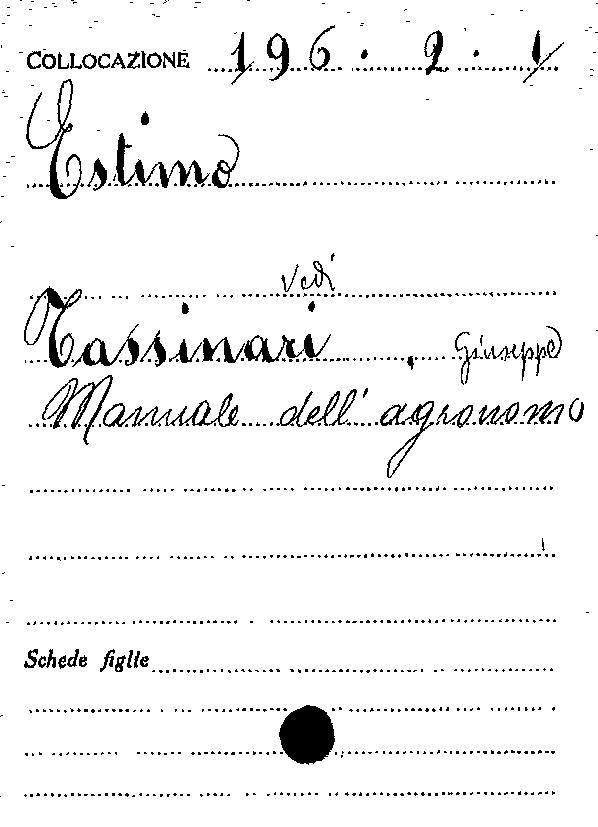 COLLOCAZIONE 196.2.1
Estimo
Vedi
Tassinari, Giuseppe
Manuale dell'agronomo
Schede figlie